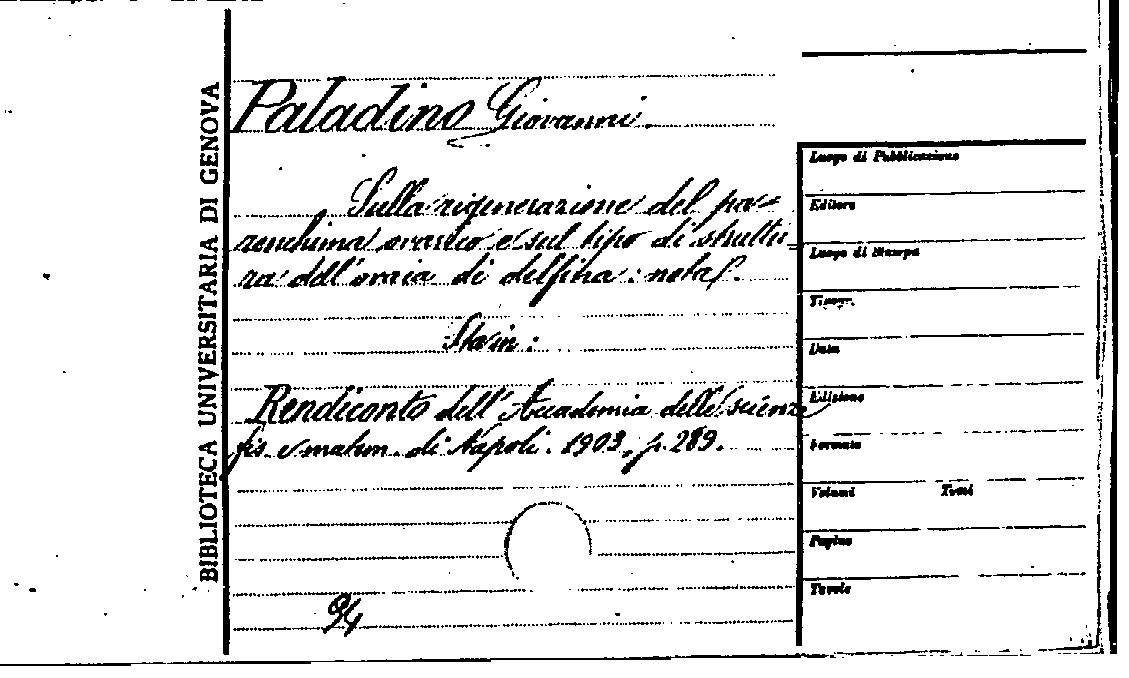 BIBLIOTECA UNIVERSITARIA DI GENOVA
Paladino Giovanni.
Sulla rigenerazione del pa=
renchima ovarico e sul tipo di struttu=
ra dell'ovaia di delfina: nota.
Sta in:
Rendiconto dell'Accademia delle scienze
fis. e matem. di Napoli. 1903, p. 289.
94
Luogo di Pubblicazione
Editore
Luogo di Stampa
Tipogr.
Data
Edizione
Formato
Volumi Tomi
Pagine
Tavole